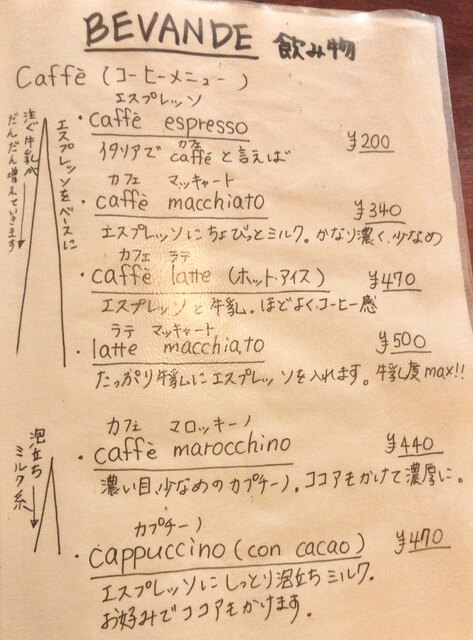 BEVANDE 飲み物
Caffè (コーヒーメニュー)
エスプレッソ
・caffè espresso ¥200
イタリアで caffè と言えば
カフェ
カフェ マッキャート
・caffè macchiato ¥340
エスプレッソにちょびっとミルク。かなり濃く、少なめ
カフェ ラテ
・caffè latte (ホット・アイス) ¥470
エスプレッソと牛乳。ほどよくコーヒー感
ラテ マッキャート
・latte macchiato ¥500
たっぷり牛乳にエスプレッソを入れます。牛乳度max!!
エスプレッソをベースに
注ぐ牛乳が
だんだん増えていきます
カフェ マロッキーノ
・caffè marocchino ¥440
濃い目、少なめのカプチーノ。ココアもかけて濃厚に。
カプチーノ
・cappuccino (con cacao) ¥470
エスプレッソにしっとり泡立ちミルク。
お好みでココアもかけます。
泡立ち
ミルク系